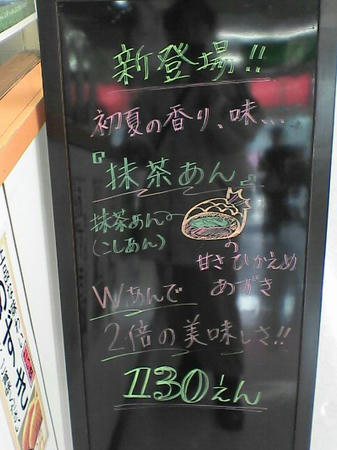 新登場!!
初夏の香り、味…
『抹茶あん』
抹茶あん
(こしあん)
の
甘さひかえめ
あずき
Wあんで
2倍の美味しさ!!
130えん